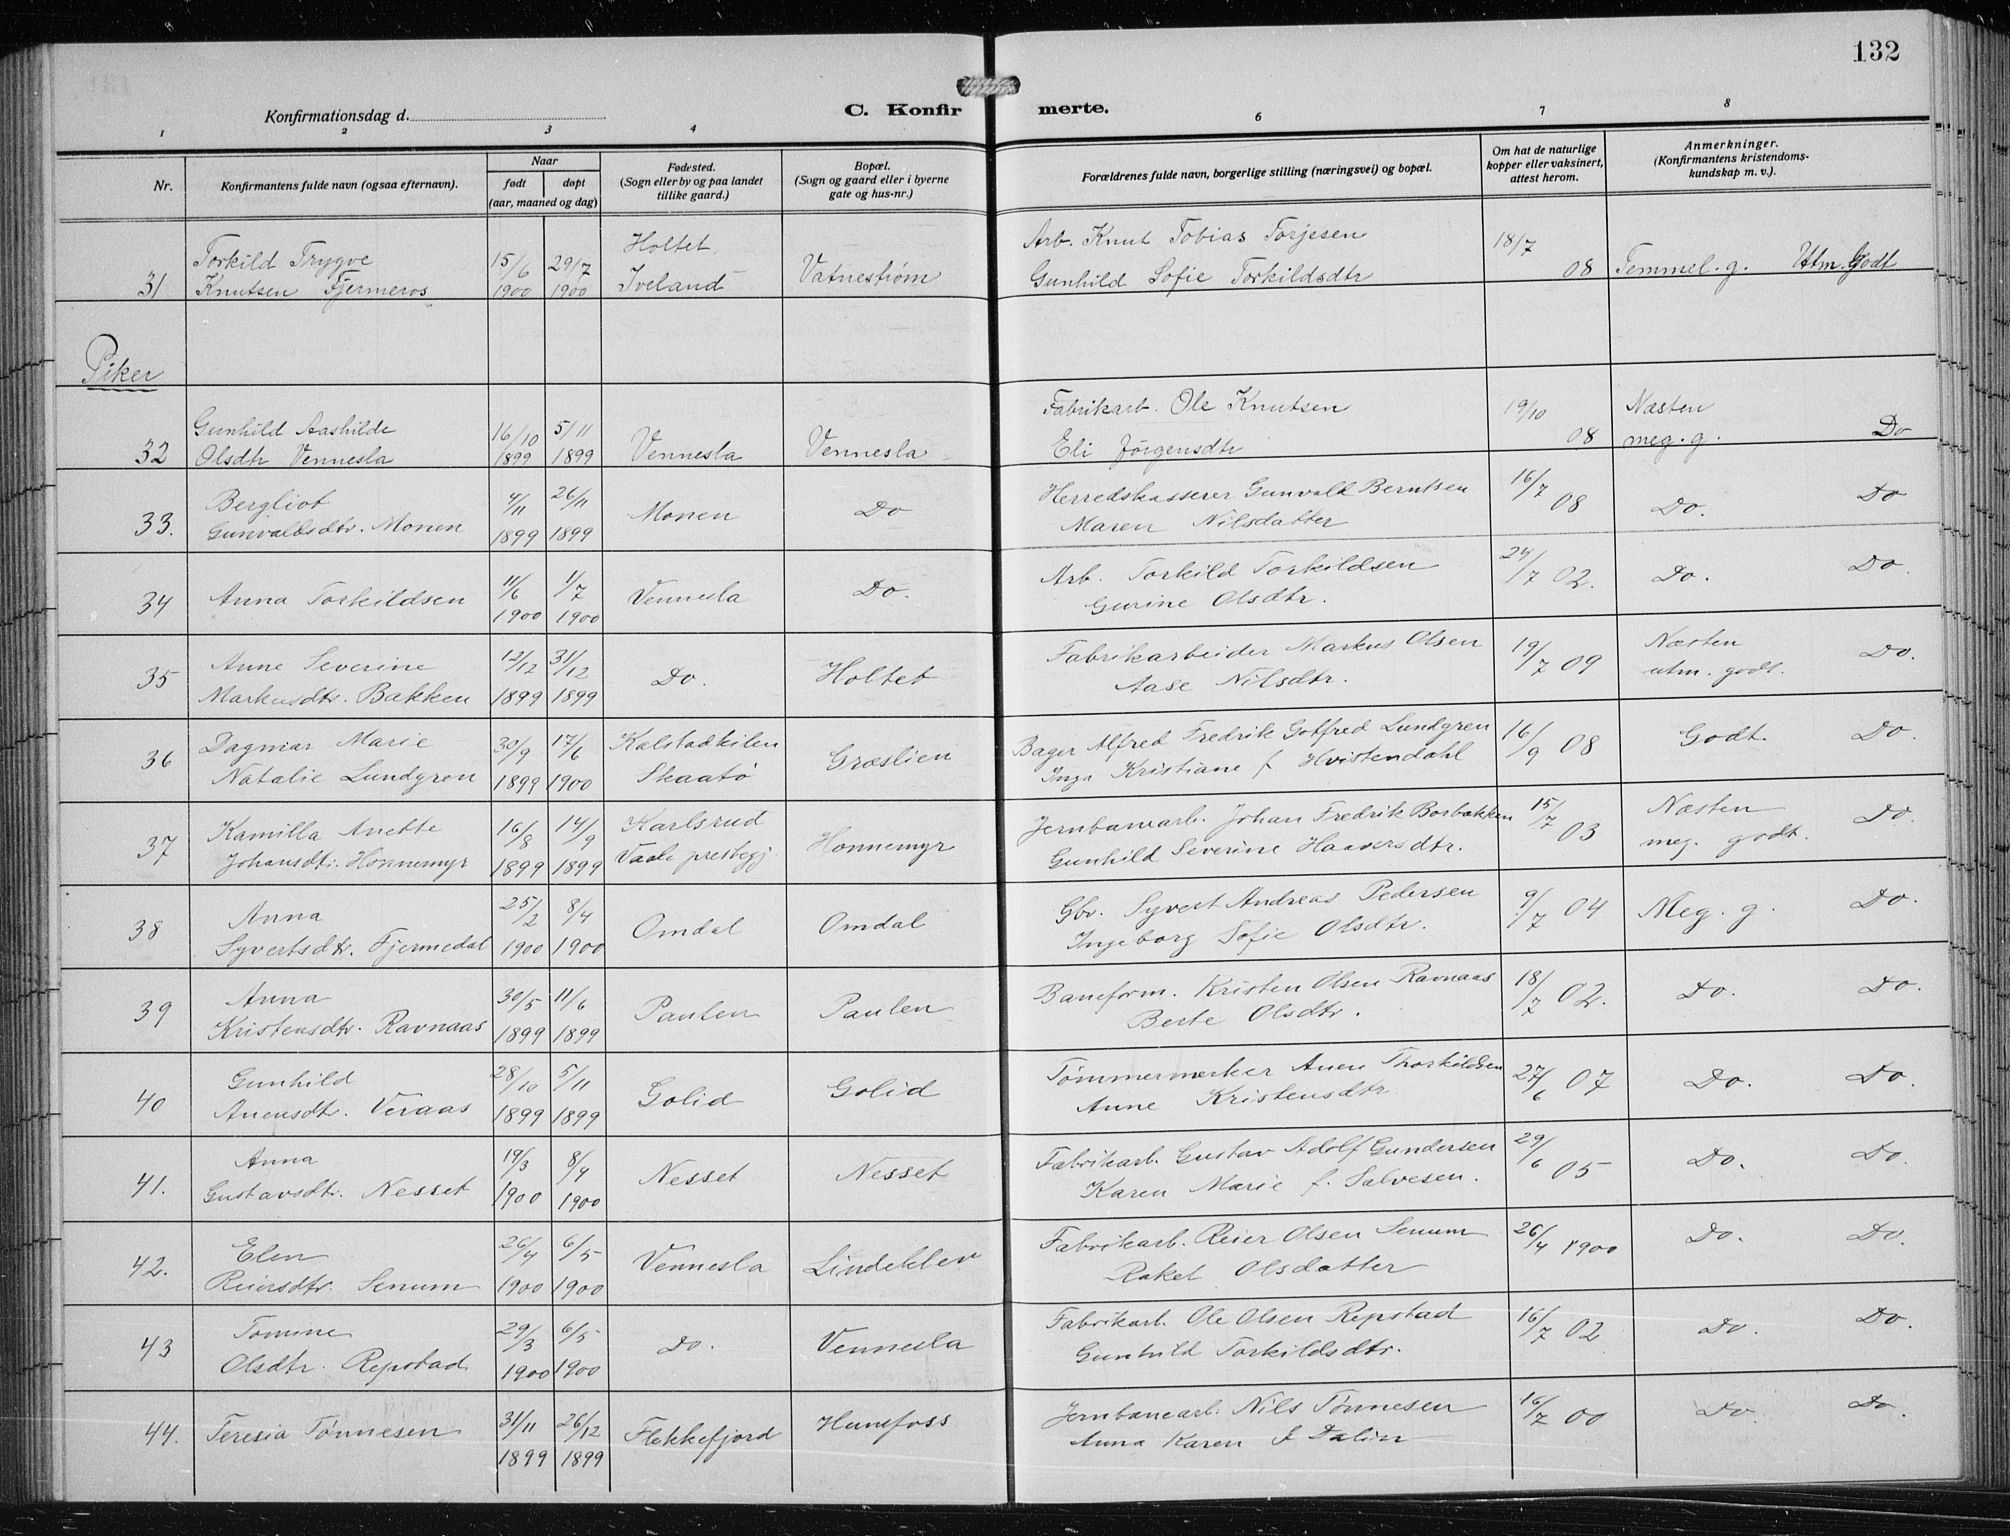 132
Konfirmationsdag d.
C. Konfirmerte.
1 2 3 4 6 7 8
Nr.
Konfirmantens fulde navn (ogsaa efternavn).
Naar
født
døpt
(aar, maaned og dag)
Fødested.
(Sogn eller by og paa landet
tillike gaard.)
Bopæl.
(Sogn og gaard eller i byerne
gate og hus-nr.)
Forældrenes fulde navn, borgerlige stilling (næringsvei) og bopæl.
Om hat de naturlige
kopper eller vaksinert,
attest herom.
Anmerkninger.
(Konfirmantens kristendoms-
kundskap m. v.).
Torkild Trygve 15/6 29/7 Holtet Arb. Knut Tobias Torjesen 18/7
31 Knutsen Fjermeros 1900 1900 Iveland Vatnestrøm Gunhild Sofie Torkildsdtr 08 Temmel. g. Utm. Godt
Piker
Gunhild Aashilde 16/10 5/11 Fabrikarb. Ole Knutsen 19/10 Næsten
32 Olsdtr Vennesla 1899 1899 Vennesla Vennesla Eli Jörgensdtr 08 meg. g. Do
Bergliot 4/11 26/11 Herredskasserer Gunvald Berntsen 16/7
33. Gunvaldsdtr. Monen 1899 1899 Monen Do Maren Nilsdatter 08 Do. Do
11/6 1/7 Arb. Torkild Torkildsen 24/7 02.
34 Anna Torkildsen 1900 1900 Vennesla Do. Gurine Olsdtr. Do. Do
Anne Severine 12/12 31/12 Fabrikarbeider Markus Olsen 19/7 09 Næsten
35 Markusdtr. Bakken 1899 1899 Do. Holtet Aase Nilsdtr. utm. godt. Do.
Dagmar Marie 30/9 17/6 Kalstadkilen Bager Alfred Fredrik Gotfred Lundgren 16/9 08
36 Natalie Lundgren 1899 1900 Skaatö Græslien Inga Kristiane f Hvistendahl Godt. Do.
Kamilla Anette 16/8 14/9 Karlsrud Jernbanearb. Johan Fredrik Bosbakken 15/7 Næsten
37 Johansdtr. Honnemyr 1899 1899 Vaale prestegj Honnemyr Gunhild Severine Haaversdtr. 03 meg. godt. Do.
Anna 25/2 8/4 Gbr. Syvert Andreas Pedersen 9/7 04
38 Syvertsdtr. Fjermedal 1900 1900 Omdal Omdal Ingeborg Sofie Olsdtr. Meg. g. Do.
Anna 30/5 11/6 Baneform. Kristen Olsen Ravnaas 18/7 02.
39 Kristensdtr. Ravnaas 1899 1899 Paulen Paulen Berte Olsdtr. Do. Do.
Gunhild 28/10 5/11 Tömmermerker Anen Thorkildsen 27/6 07
40 Anensdtr. Veraas 1899 1899 Golid Golid Anne Kristensdtr Do. Do.
Anna 19/3 8/4 Fabrikarb. Gustav Adolf Gundersen 29/6
41. Gustavsdtr. Nesset 1900 1900 Nesset Nesset Karen Marie f. Salvesen. 05 Do. Do.
Elen 26/4 6/5 Fabrikarb. Reier Olsen Senum 26/4 1900
42. Reiersdtr. Senum 1900 1900 Vennesla Lindeklev Rakel Olsdatter Do. Do.
Tomine 29/3 6/5 Fabrikarb. Ole Olsen Repstad 16/7 02
43 Olsdtr. Repstad 1900 1900 Do. Vennesla Gunhild Torkildsdtr. Do. Do.
31/11 26/12 Jernbanearb. Nils Tönnesen 16/7 00
44. Teresia Tönnesen 1899 1899 Flekkefjord Hunsfoss Anna Karen f Dalin Do. Do.